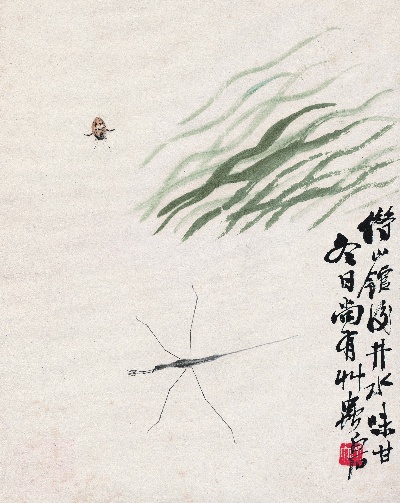 借山馆后井水味甘
冬日尚有草虫 白石